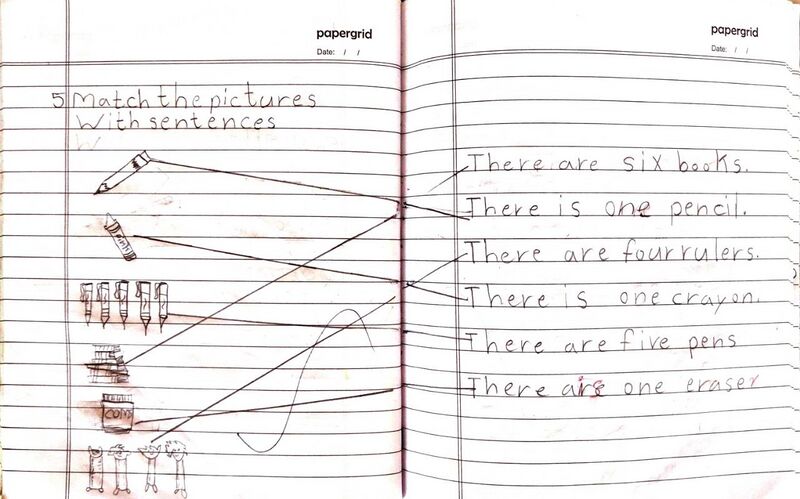 papergrid
Date: / /
5 Match the pictures
With sentences
W
papergrid
Date: / /
There are six books.
There is one pencil.
There are four rulers.
There is one crayon.
There are five pens
There is one eraser